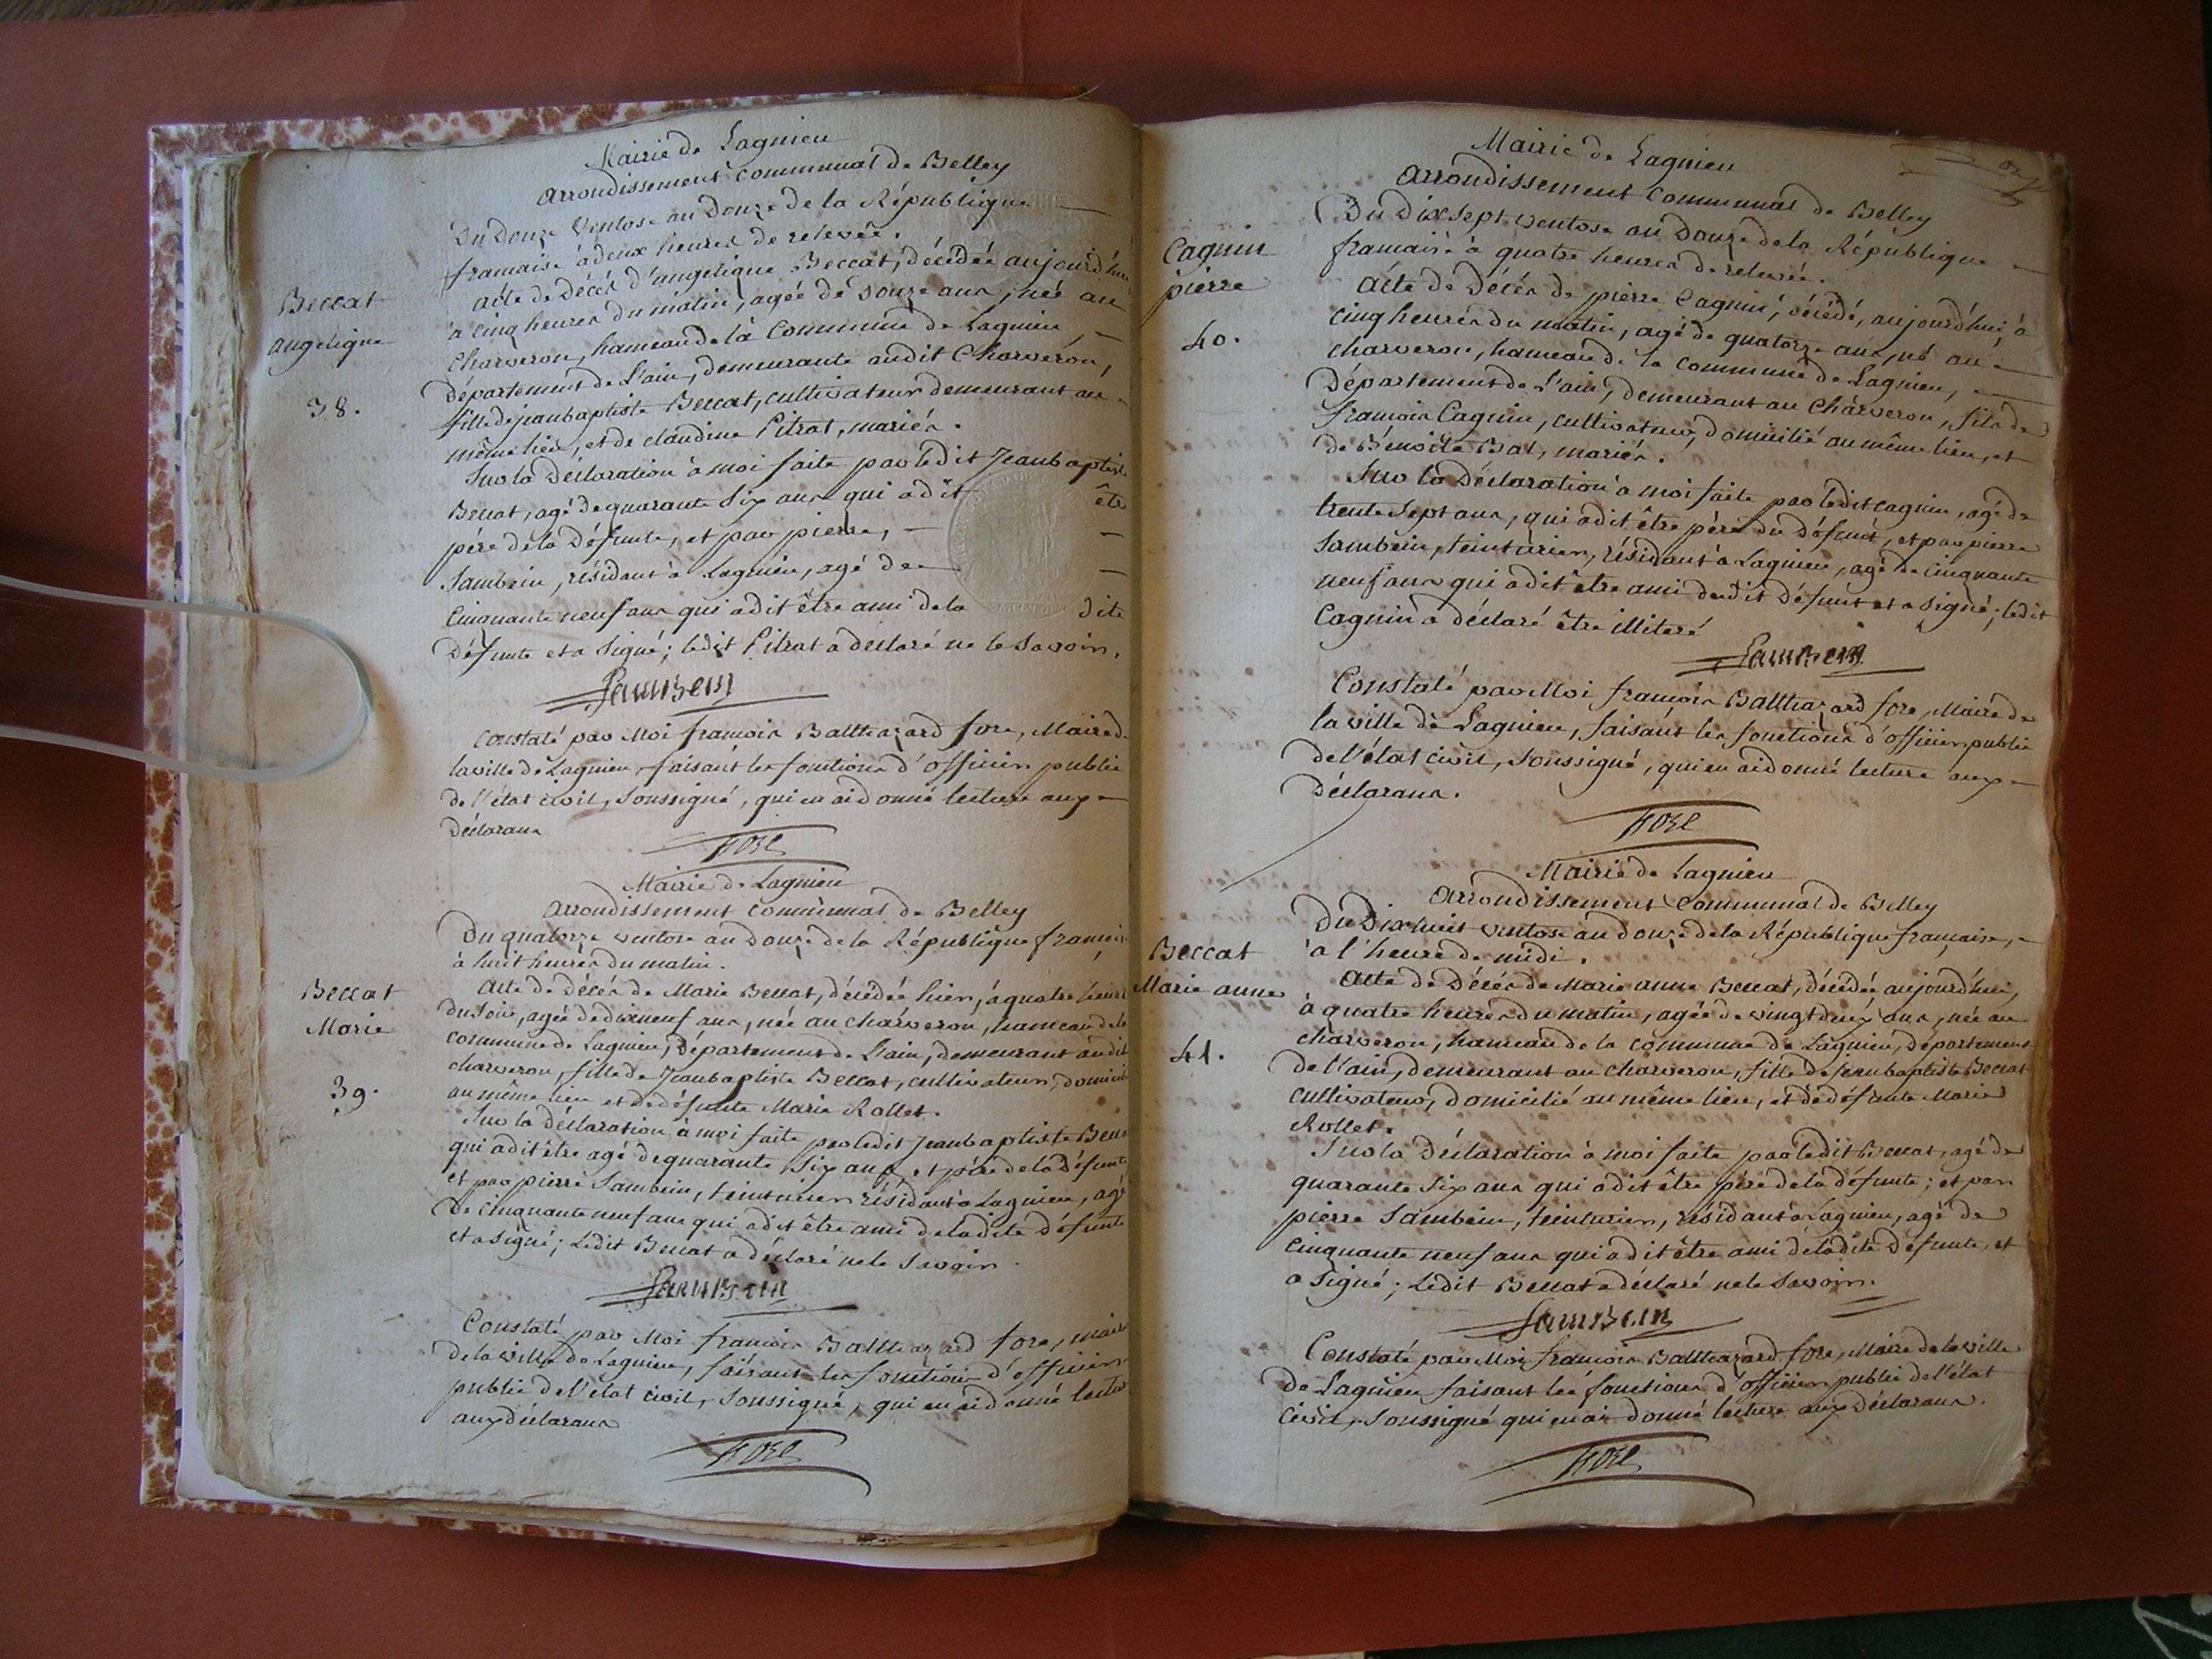 Mairie de Lagnieu
Arrondissement Communal de Belley
Du Douze Ventose an Douze de la République
française à deux heures de relevée.
Beccat
angelique
38.
Acte de Décès d'angelique Beccat, décédée aujourd'hui
à cinq heures du matin, agée de douze ans, née au
Charveron, hameau de la Commune de Lagnieu,
Département de L'ain, demeurante audit Charveron,
fille de jeanbaptiste Beccat, cultivateur demeurant au
même lieu, et de claudine Pitrat, mariés.
Sur la Déclaration à moi faite par ledit Jeanbaptiste
Beccat, agé de quarante Six ans qui a dit être
père de la Défunte, et par pierre,
Sambein, résidant à Lagnieu, agé de
Cinquante neuf ans qui a dit être ami de la dite
Défunte et a Signé; ledit Pitrat a déclaré ne le Savoir.
Sambein
Constaté par Moi françois Balthazard fore, Maire de
la ville de Lagnieu, faisant les fonctions d'officier public
de l'état civil, Soussigné, qui en ai donné lecture aux
Déclarans
Fore
Mairie de Lagnieu
Arrondissement Communal de Belley
Du quatorze ventose an Douze de la République françoise
à huit heures du matin.
Beccat
Marie
39.
Acte de décès de Marie Beccat, décédée hier, à quatre heures
du Soir, agée de dixneuf ans, née au charveron, hameau de la
commune de Lagnieu, Département de L'ain, demeurant audit
charveron, fille de Jeanbaptiste Beccat, cultivateur, domicilié
au même lieu et de défunte Marie Rollet.
Sur la déclaration à moi faite par ledit Jeanbaptiste Beccat
qui a dit être agé de quarante Six ans et père de la Défunte
et par pierre Sambein, teinturier résidant à Lagnieu, agé
De cinquante neuf ans qui a dit être ami de ladite défunte
et a signé; Ledit Beccat a déclaré ne le Savoir.
Sambein
Constaté par Moi françois Balthazard fore, maire
de la ville de Lagnieu, faisant les fonctions d'officier
public de l'état civil, Soussigné, qui en ai donné lecture
aux déclarans
Fore
Mairie de Lagnieu
Arrondissement Communal de Belley
Du Dix Sept Ventose an Douze de la République
française à quatre heures de relevée.
Cagnin
pierre
40.
Acte de Décès de pierre Cagnin, décédé, aujourd'hui, à
cinq heures du matin, agé de quatorze ans, né au
charveron, hameau de la commune de Lagnieu,
Département de L'ain, demeurant au Charveron, fils de
françois Cagnin, cultivateur, domicilié au même lieu, et
de Benoite Bal, mariés.
Sur la Déclaration à moi faite par ledit cagnin, agé de
trente Sept ans, qui a dit être père du défunt, et par pierre
Sambein, teinturier, résidant à Lagnieu, agé de cinquante
neuf ans qui a dit être ami dudit Défunt et a signé; ledit
Cagnin a déclaré être illiteré
Sambein
Constaté par Moi françois Balthazard fore, Maire de
la ville de Lagnieu, faisant les fonctions d'officier public
de l'état civil, Soussigné, qui en ai donné lecture aux
Déclarans.
Fore
Mairie de Lagnieu
Arrondissement Communal de Belley
Du Dixhuit ventose an douze de la République française,
à l'heure de midi.
Beccat
Marie anne
41.
Acte de Décès de Marie anne Beccat, décédée aujourd'hui,
à quatre heures du matin, agée de vingt deux ans, née au
charveron, hameau de la commune de Lagnieu, Département
de l'ain, demeurant au charveron, fille de Jeanbaptiste Beccat
cultivateur, domicilié au même lieu, et de défunte Marie
Rollet.
Sur la Déclaration à moi faite par ledit Beccat, agé de
quarante Six ans qui a dit être père de la défunte; et par
pierre Sambein, teinturier, résidant à Lagnieu, agé de
Cinquante neuf ans qui a dit être ami de ladite Défunte, et
a Signé; Ledit Beccat a déclaré ne le Savoir.
Sambein
Constaté par Moi françois Balthazard fore, Maire de la ville
de Lagnieu faisant les fonctions d'officier public de l'état
civil, Soussigné qui en ai donné lecture aux Déclarans.
Fore